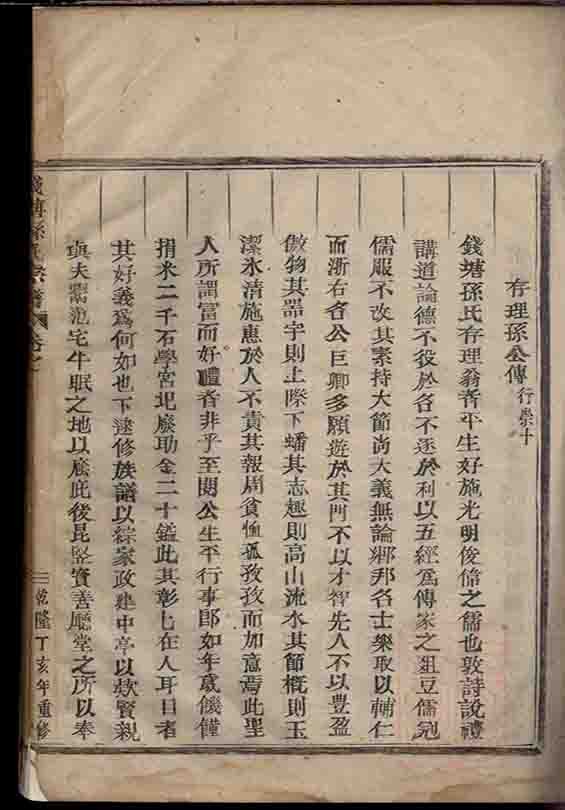 存理孫公傳行崇十
錢塘孫氏存理翁者平生好施光明俊偉之儒也敦詩說禮
講道論德不役於名不逐於利以五經爲傳家之俎豆儒冠
儒服不改其素持大節尚大義無論鄉邦名士樂取以輔仁
而浙右名公巨卿多願遊於其門不以才智先人不以豊盈
傲物其器宇則上際下蟠其志趣則高山流水其節槪則玉
潔氷清施惠於人不責其報周貧恤孤孜孜而加意焉此聖
人所謂富而好禮者非乎至閱公生平行事卽如年歲饑饉
捐米二千石學宮圯廢助金二十鎰此其彰彰在人耳目者
其好義爲何如也下逮修族譜以綜家政建中亭以欸賢親
與夫置范宅牛眠之地以廕庇後昆竪寶善廳堂之所以奉
錢塘孫氏宗譜
乾隆丁亥年重修